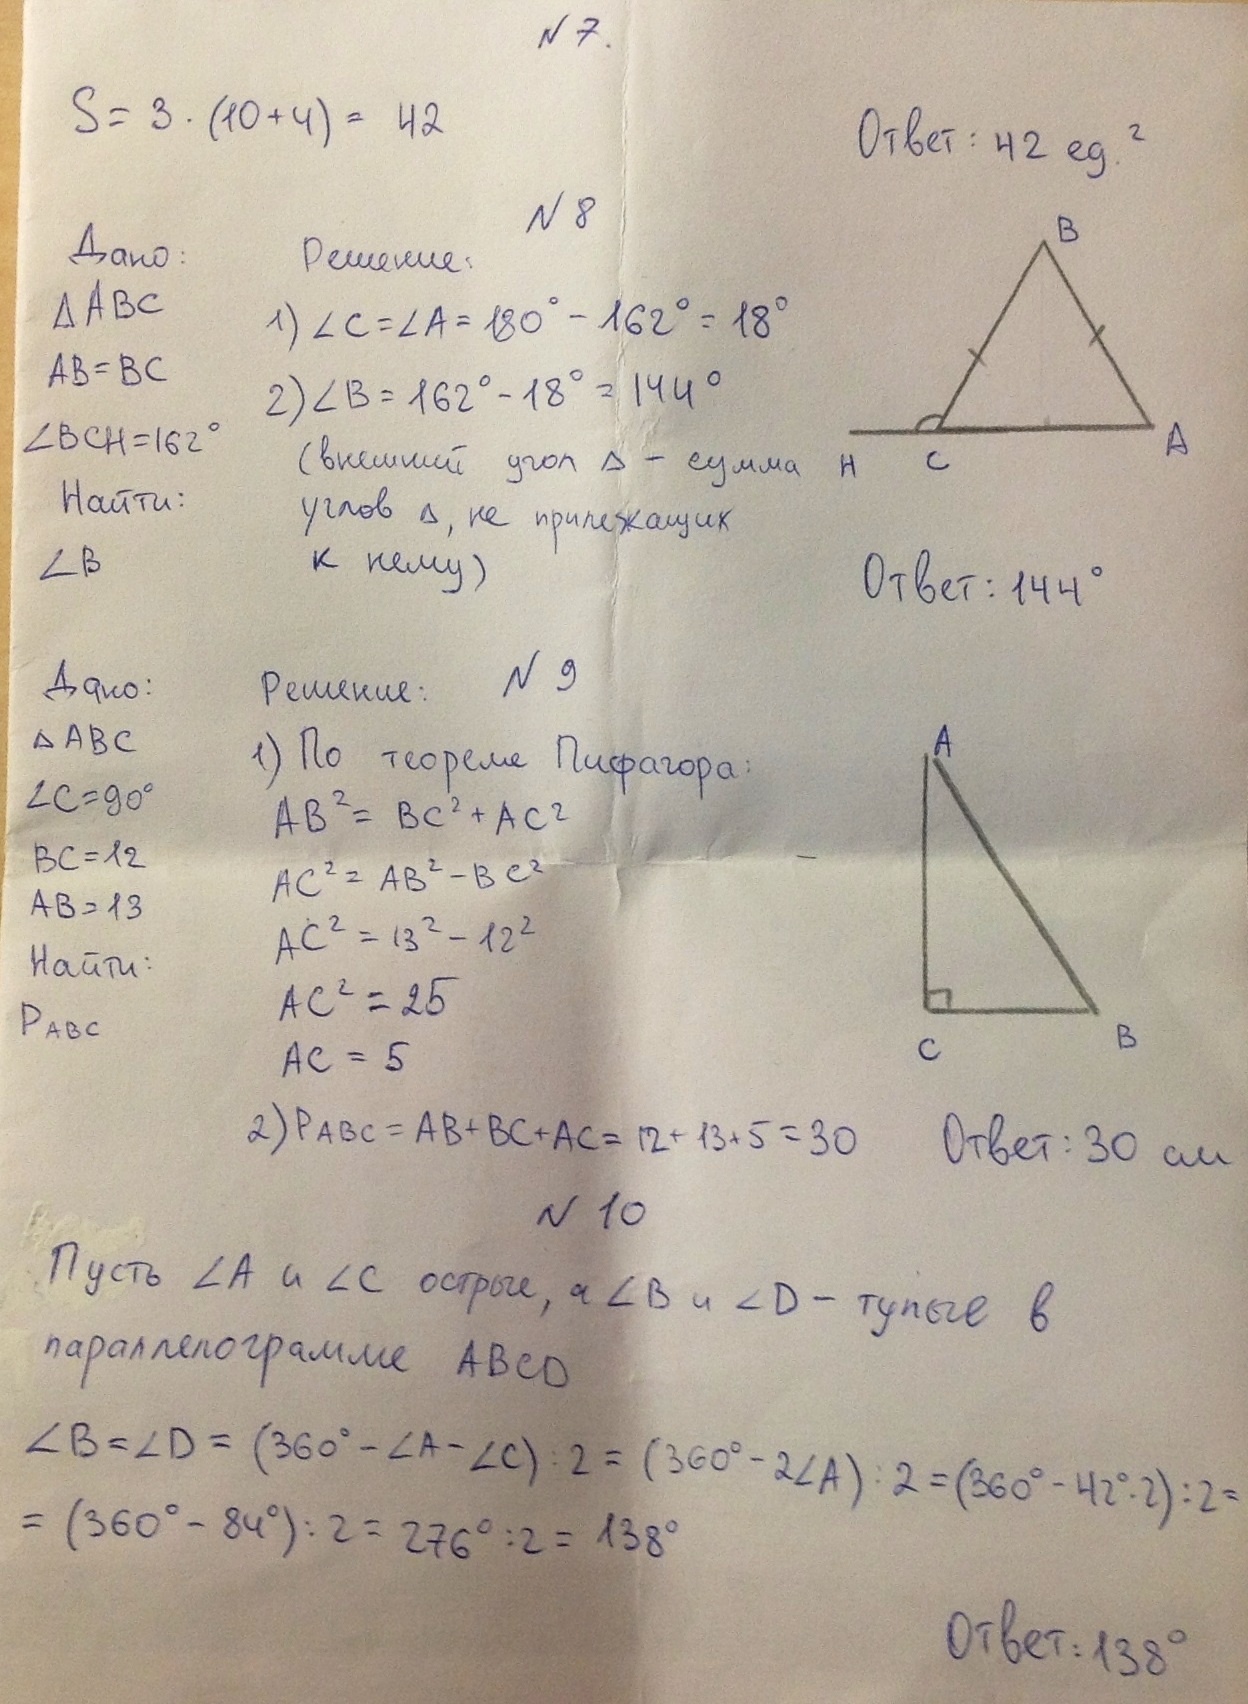 N 7.
S = 3 · (10+4) = 42
Ответ: 42 ед.²
N 8
Дано:
Δ ABC
AB = BC
∠BCH = 162°
Найти:
∠B
Решение:
1) ∠C = ∠A = 180° - 162° = 18°
2) ∠B = 162° - 18° = 144°
(внешний угол Δ - сумма
углов Δ, не прилежащих
к нему)
B
H
C
A
Ответ: 144°
N 9
Дано:
Δ ABC
∠C = 90°
BC = 12
AB = 13
Найти:
P ABC
Решение:
1) По теореме Пифагора:
AB² = BC² + AC²
AC² = AB² - BC²
AC² = 13² - 12²
AC² = 25
AC = 5
2) P ABC = AB + BC + AC = 12 + 13 + 5 = 30
A
C
B
Ответ: 30 см
N 10
Пусть ∠A и ∠C острые, а ∠B и ∠D - тупые в
параллелограмме ABCD
∠B = ∠D = (360° - ∠A - ∠C) : 2 = (360° - 2∠A) : 2 = (360° - 42°·2) : 2 =
= (360° - 84°) : 2 = 276° : 2 = 138°
Ответ: 138°